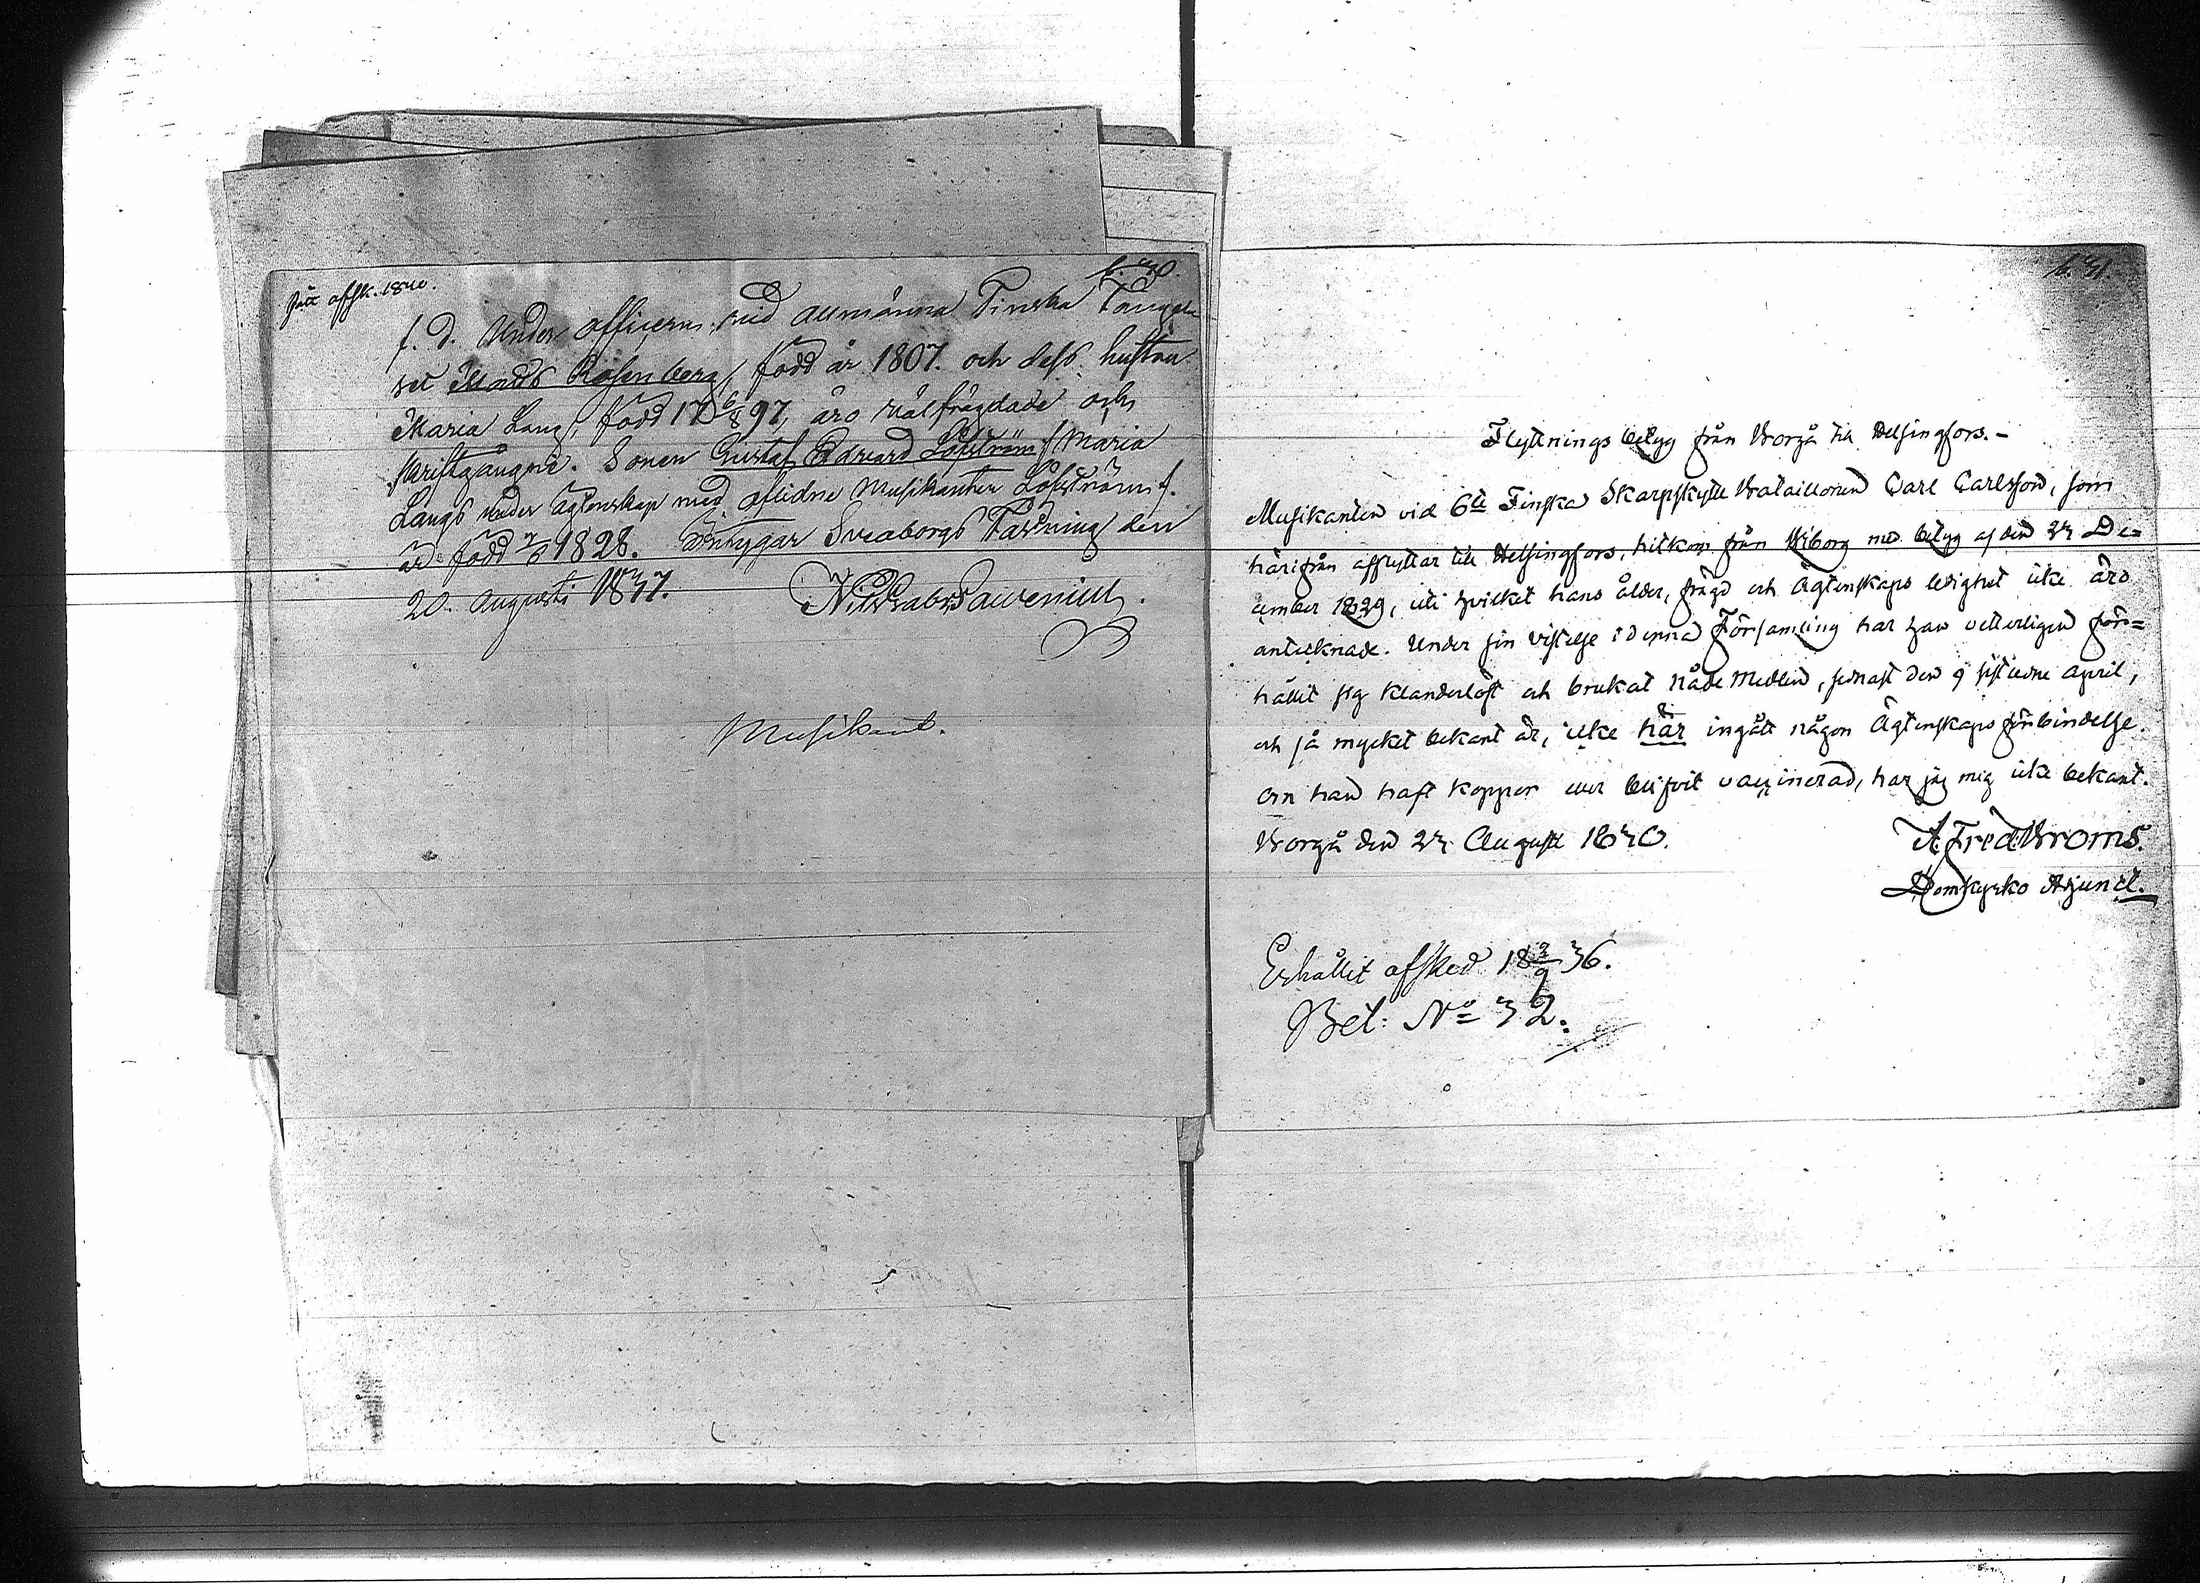 fått afsk. 1840.
b. 30.
f. d. Under officern vid allmänna Finska Fånge
set Mads Rosenberg, född år 1807. och dess hustru
Maria Lang, född 17 6/8 97, äro välfrägdade och
skriftgångne. Sonen Gustaf Edvard Löfström f Maria
Langs under ägtenskap med aflidne Musikanten Löfström f.
är född 1828. Betygar Sveaborgs Fästning den
20. Augusti 1837.
Musikant.
b. 31.
Flyttnings betyg från Borgå till Helsingfors.-
Musikanten vid 6te Finska Skarpskytte Bataillonen Carl Carlsson, som
härifrån afflyttar till Helsingfors, hitkom från Wiborg med betyg af den 23 De=
cember 1829, uti hvilket hans ålder, frägd och Ägtenskaps ledighet icke äro
antecknade. Under sin vistelse i denna Församling har han vetterligen för=
hållit sig klanderlöst och brukat Nåde Medlen, senast den 9 sistledne April,
och så mycket bekant är, icke här ingått någon Ägtenskaps förbindelse.
Om han haft koppor eller blifvit vaccinerad, har jag mig icke bekant.
Borgå den 23 Augusti 1830.
A Fred Broms.
Domkyrko Adjunct.
Erhållit afsked 18 3/9 36.
Bet: No 32.